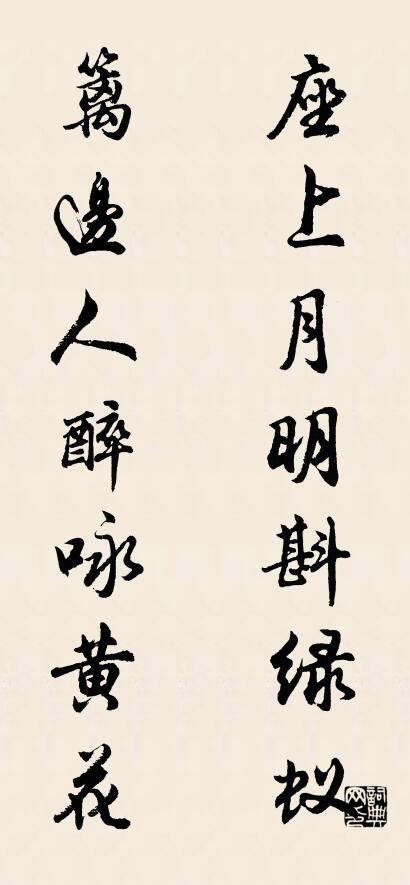 座上月明斟绿蚁
籬邊人醉咏黄花
词典网